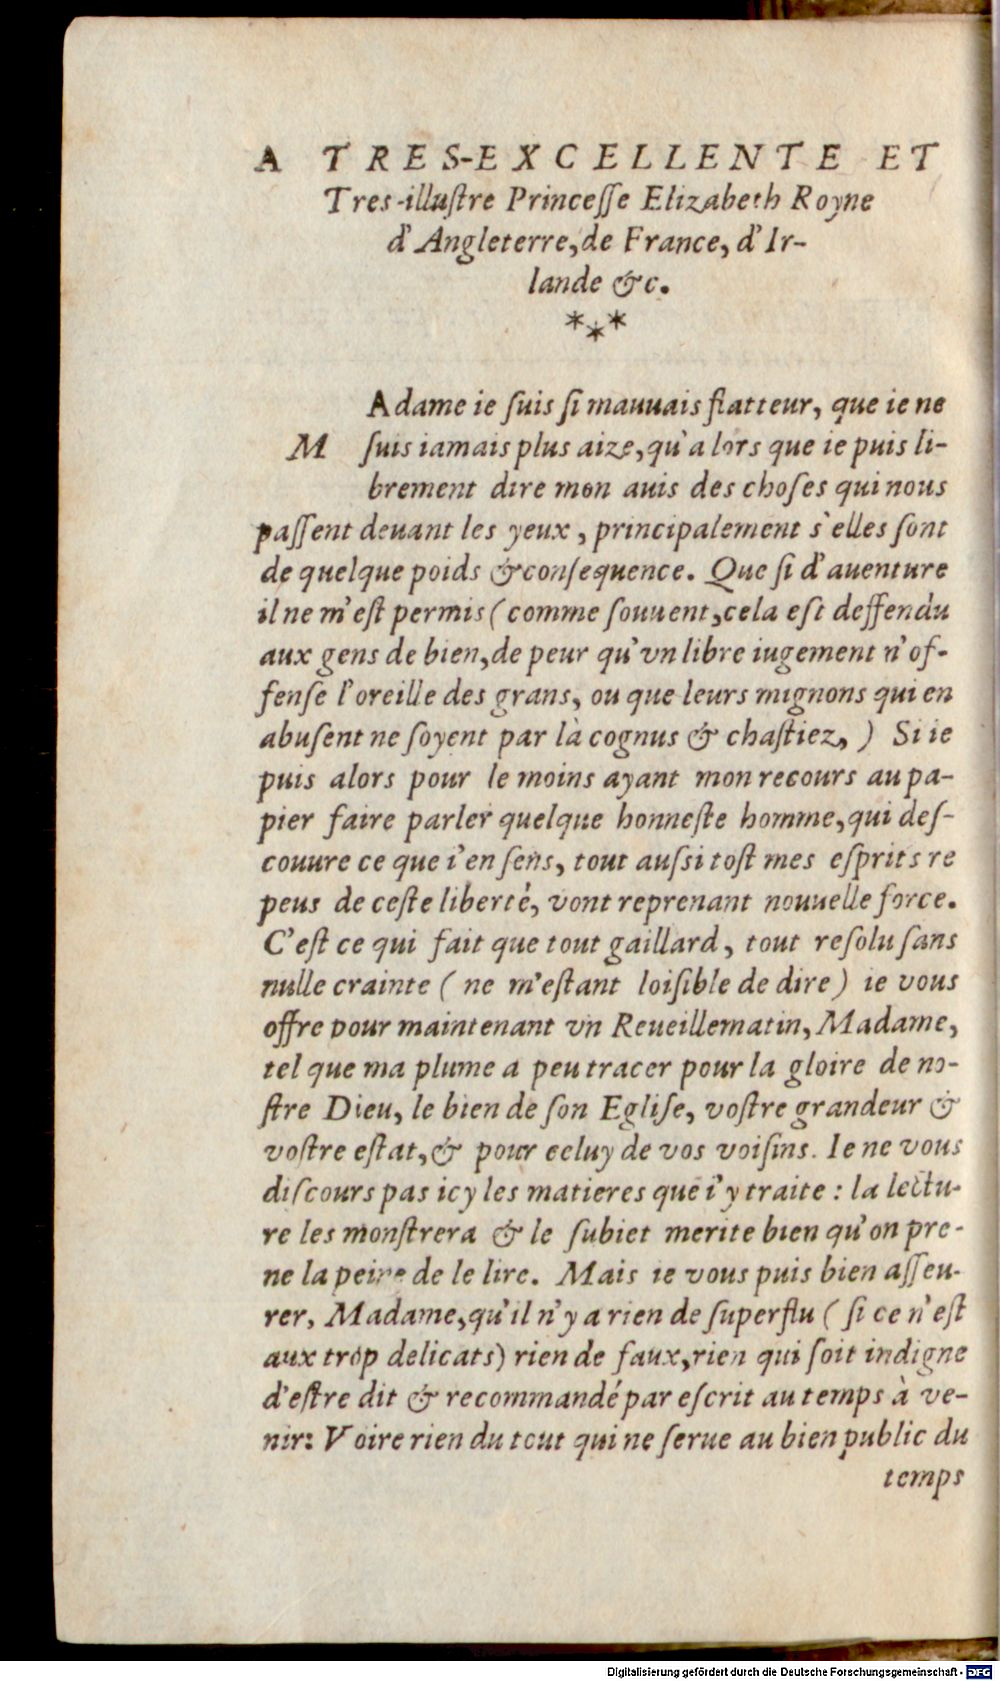 A TRES-EXCELLENTE ET
Tres-illuſtre Princeſſe Elizabeth Royne
d'Angleterre, de France, d'Ir-
lande &c.
***
Adame ie ſuis ſi mauuais flatteur, que ie ne
M ſuis iamais plus aize, qu'alors que ie puis li-
brement dire mon auis des choſes qui nous
paſſent deuant les yeux, principalement s'elles ſont
de quelque poids & conſequence. Que ſi d'auenture
il ne m'eſt permis (comme ſouuent, cela eſt deffendu
aux gens de bien, de peur qu'vn libre iugement n'of-
fenſe l'oreille des grans, ou que leurs mignons qui en
abuſent ne ſoyent par là cognus & chaſtiez, ) Si ie
puis alors pour le moins ayant mon recours au pa-
pier faire parler quelque honneſte homme, qui deſ-
couure ce que i'en ſens, tout auſsi toſt mes eſprits re
peus de ceſte liberté, vont reprenant nouuelle force.
C'eſt ce qui fait que tout gaillard, tout reſolu ſans
nulle crainte ( ne m'eſtant loiſible de dire) ie vous
offre pour maintenant vn Reueillematin, Madame,
tel que ma plume a peu tracer pour la gloire de no-
ſtre Dieu, le bien de ſon Egliſe, voſtre grandeur &
voſtre eſtat, & pour celuy de vos voiſins. Ie ne vous
diſcours pas icy les matieres que i'y traite : la lectu-
re les monſtrera & le ſubiet merite bien qu'on pre-
ne la peine de le lire. Mais ie vous puis bien aſſeu-
rer, Madame, qu'il n'y a rien de ſuperflu ( ſi ce n'eſt
aux trop delicats) rien de faux, rien qui ſoit indigne
d'eſtre dit & recommandé par eſcrit au temps à ve-
nir: Voire rien du tout qui ne ſerue au bien public du
temps
Digitalisierung gefördert durch die Deutsche Forschungsgemeinschaft - DFG